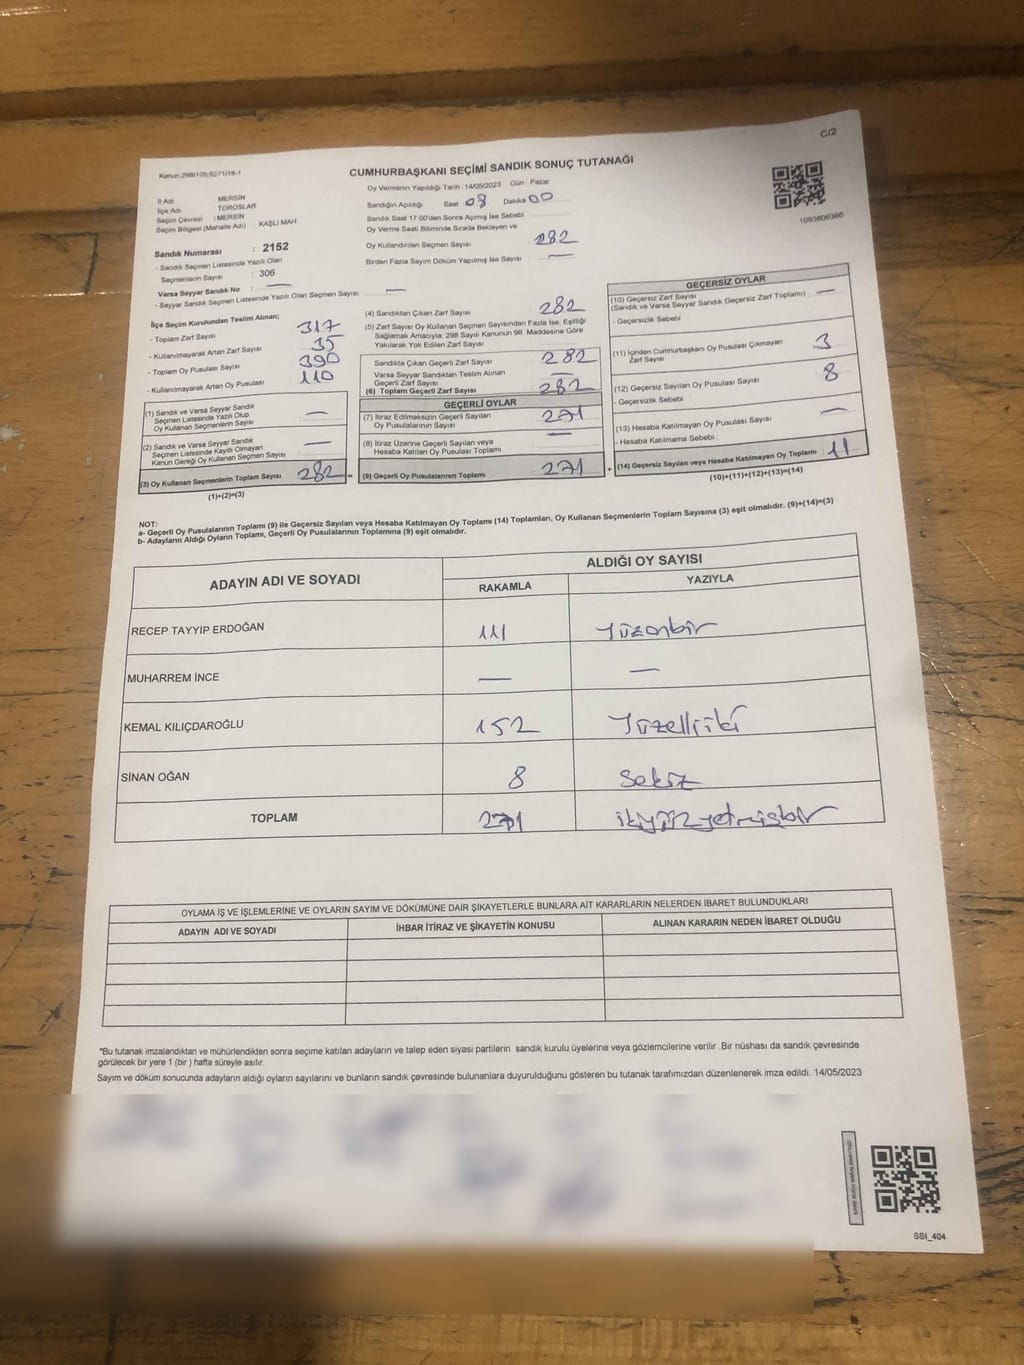 C/2
Kanun.298/105,6271/18-1
CUMHURBAŞKANI SEÇİMİ SANDIK SONUÇ TUTANAĞI
Oy Vermenin Yapıldığı Tarih :14/05/2023 Gün : Pazar
İl Adı : MERSİN
İlçe Adı : TOROSLAR
Seçim Çevresi : MERSİN
Seçim Bölgesi (Mahalle Adı) : KAŞLI MAH
Sandığın Açıldığı Saat 08 Dakika 00
Sandık Saat 17:00'den Sonra Açımış İse Sebebi
Oy Verme Saati Bitiminde Sırada Bekleyen ve
Oy Kullandırılan Seçmen Sayısı 282
Birden Fazla Sayım Döküm Yapılmış İse Sayısı —
1093806366
Sandık Numarası : 2152
- Sandık Seçmen Listesinde Yazılı Olan
Seçmenlerin Sayısı : 306
Varsa Seyyar Sandık No : —
- Seyyar Sandık Seçmen Listesinde Yazılı Olan Seçmen Sayısı: —
İlçe Seçim Kurulundan Teslim Alınan;
- Toplam Zarf Sayısı 317
- Kullanılmayarak Artan Zarf Sayısı 35
- Toplam Oy Pusulası Sayısı 390
- Kullanılmayarak Artan Oy Pusulası 110
(1) Sandık ve Varsa Seyyar Sandık
Seçmen Listesinde Yazılı Olup
Oy Kullanan Seçmenlerin Sayısı —
(2) Sandık ve Varsa Seyyar Sandık
Seçmen Listesinde Kayıtlı Olmayan
Kanun Gereği Oy Kullanan Seçmen Sayısı —
(3) Oy Kullanan Seçmenlerin Toplam Sayısı 282 =
(1)+(2)=(3)
(4) Sandıktan Çıkan Zarf Sayısı 282
(5) Zarf Sayısı Oy Kullanan Seçmen Sayısından Fazla İse, Eşitliği
Sağlamak Amacıyla; 298 Sayılı Kanunun 98. Maddesine Göre
Yakılarak Yok Edilen Zarf Sayısı
Sandıkta Çıkan Geçerli Zarf Sayısı 282
Varsa Seyyar Sandıktan Teslim Alınan
Geçerli Zarf Sayısı —
(6) Toplam Geçerli Zarf Sayısı 282
GEÇERLİ OYLAR
(7) İtiraz Edilmeksizin Geçerli Sayılan
Oy Pusulalarının Sayısı 271
(8) İtiraz Üzerine Geçerli Sayılan veya
Hesaba Katılan Oy Pusulası Toplamı —
(9) Geçerli Oy Pusulalarının Toplamı 271 +
GEÇERSİZ OYLAR
(10) Geçersiz Zarf Sayısı
(Sandık ve Varsa Seyyar Sandık Geçersiz Zarf Toplamı) : —
- Geçersizlik Sebebi
(11) İçinden Cumhurbaşkanı Oy Pusulası Çıkmayan
Zarf Sayısı 3
(12) Geçersiz Sayılan Oy Pusulası Sayısı 8
- Geçersizlik Sebebi
(13) Hesaba Katılmayan Oy Pusulası Sayısı —
- Hesaba Katılmama Sebebi
(14) Geçersiz Sayılan veya Hesaba Katılmayan Oy Toplamı : 11
(10)+(11)+(12)+(13)=(14)
NOT:
a- Geçerli Oy Pusulalarının Toplamı (9) ile Geçersiz Sayılan veya Hesaba Katılmayan Oy Toplamı (14) Toplamları, Oy Kullanan Seçmenlerin Toplam Sayısına (3) eşit olmalıdır. (9)+(14)=(3)
b- Adayların Aldığı Oyların Toplamı, Geçerli Oy Pusulalarının Toplamına (9) eşit olmalıdır.
ADAYIN ADI VE SOYADI ALDIĞI OY SAYISI
RAKAMLA YAZIYLA
RECEP TAYYİP ERDOĞAN 111 Yüzonbir
MUHARREM İNCE — —
KEMAL KILIÇDAROĞLU 152 Yüzelliiki
SİNAN OĞAN 8 Sekiz
TOPLAM 271 ikiyüzyetmişbir
OYLAMA İŞ VE İŞLEMLERİNE VE OYLARIN SAYIM VE DÖKÜMÜNE DAİR ŞİKAYETLERLE BUNLARA AİT KARARLARIN NELERDEN İBARET BULUNDUKLARI
ADAYIN ADI VE SOYADI İHBAR İTİRAZ VE ŞİKAYETİN KONUSU ALINAN KARARIN NEDEN İBARET OLDUĞU
*Bu tutanak imzalandıktan ve mühürlendikten sonra seçime katılan adayların ve talep eden siyasi partilerin sandık kurulu üyelerine veya gözlemcilerine verilir .Bir nüshası da sandık çevresinde
görülecek bir yere 1 (bir ) hafta süreyle asılır.
Sayım ve döküm sonucunda adayların aldığı oyların sayılarını ve bunların sandık çevresinde bulunanlara duyurulduğunu gösteren bu tutanak tarafımızdan düzenlenerek imza edildi. 14/05/2023
SSI_404